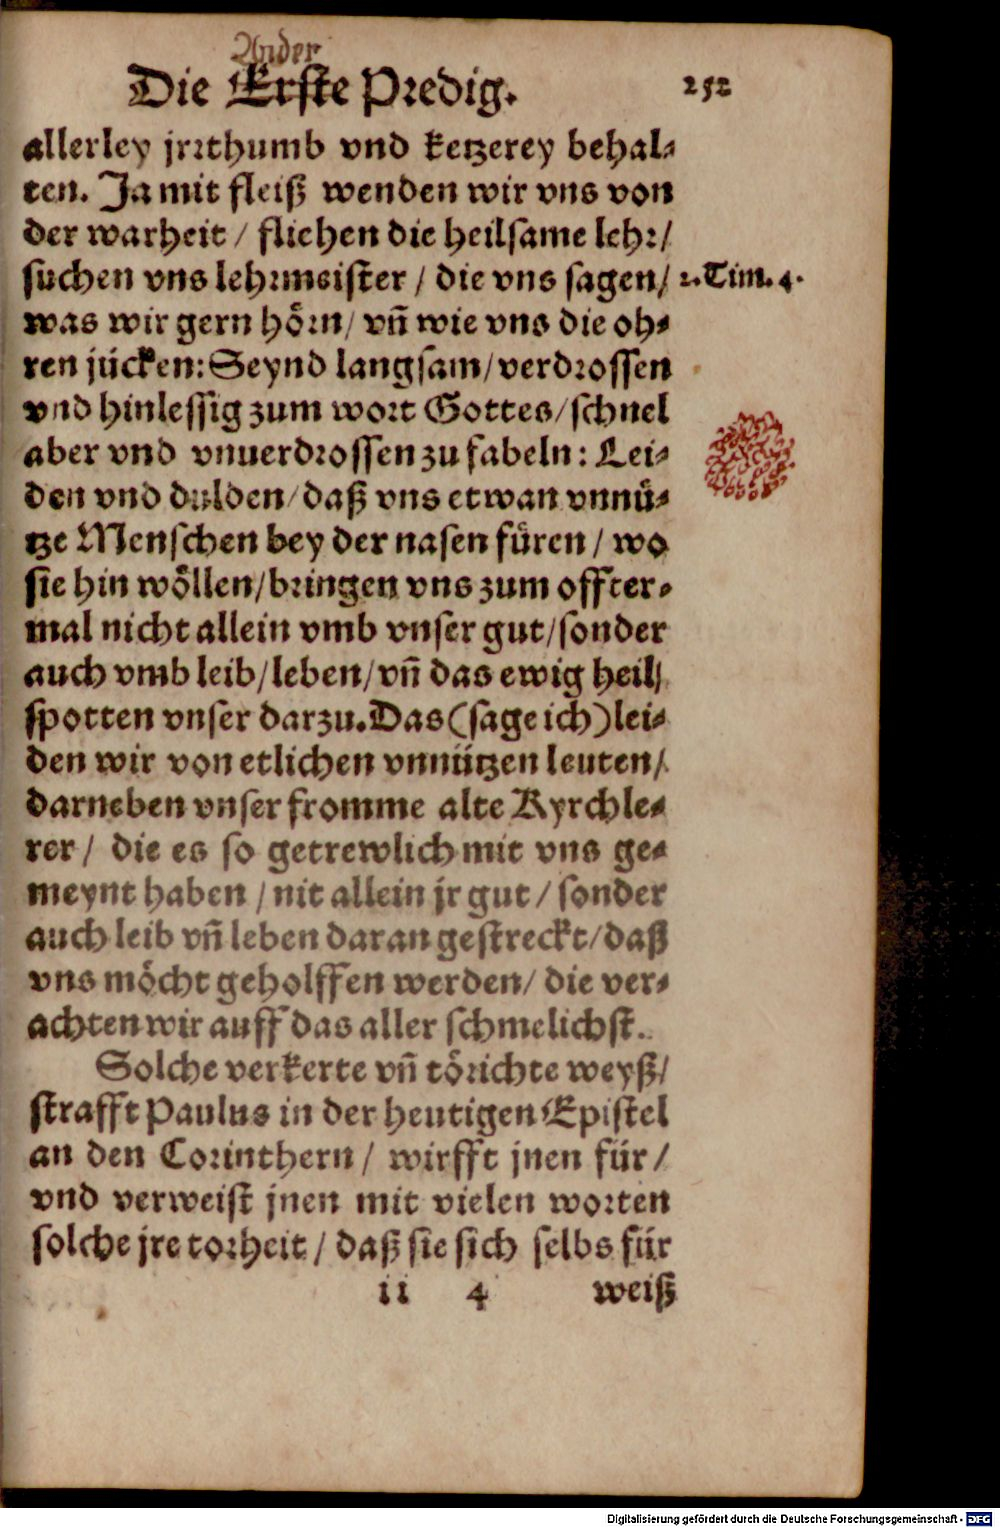 Ander
Die Erste Predig. 252
allerley jrrthumb vnd ketzerey behal-
ten. Ja mit fleiß wenden wir vns von
der warheit / fliehen die heilsame lehr /
suchen vns lehrmeister / die vns sagen / 2. Tim. 4.
was wir gern hörn / vñ wie vns die oh-
ren jücken: Seynd langsam / verdrossen
vnd hinlessig zum wort Gottes / schnel
aber vnd vnuerdrossen zu fabeln: Lei-
den vnd dulden / daß vns etwan vnnü-
tze Menschen bey der nasen füren / wo
sie hin wöllen / bringen vns zum offter-
mal nicht allein vmb vnser gut / sonder
auch vmb leib / leben / vñ das ewig heil /
spotten vnser darzu. Das (sage ich) lei-
den wir von etlichen vnnützen leuten /
darneben vnser fromme alte Kyrchle-
rer / die es so getrewlich mit vns ge-
meynt haben / nit allein jr gut / sonder
auch leib vñ leben daran gestreckt / daß
vns möcht geholffen werden / die ver-
achten wir auff das aller schmelichst.
Solche verkerte vñ törichte weyß /
strafft Paulus in der heutigen Epistel
an den Corinthern / wirfft jnen für /
vnd verweist jnen mit vielen worten
solche jre torheit / daß sie sich selbs für
ii 4 weiß
Digitalisierung gefördert durch die Deutsche Forschungsgemeinschaft - DFG